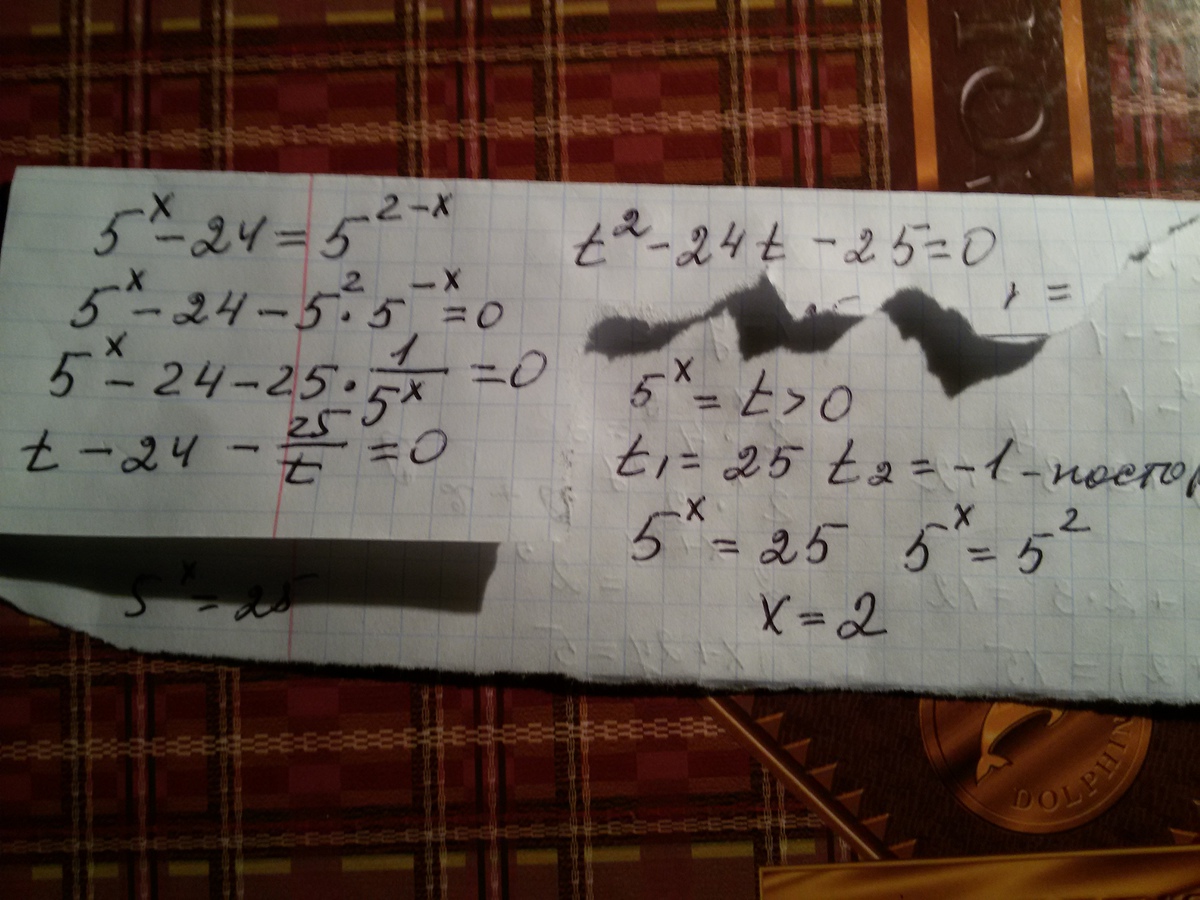 5^x - 24 = 5^{2-x}
5^x - 24 - 5^2 · 5^{-x} = 0
5^x - 24 - 25 · \frac{1}{5^x} = 0
t - 24 - \frac{25}{t} = 0
5^x = 25
t^2 - 24t - 25 = 0
5^x = t > 0
t_1 = 25 t_2 = -1 - постор
5^x = 25 5^x = 5^2
x = 2
DOLPHIN